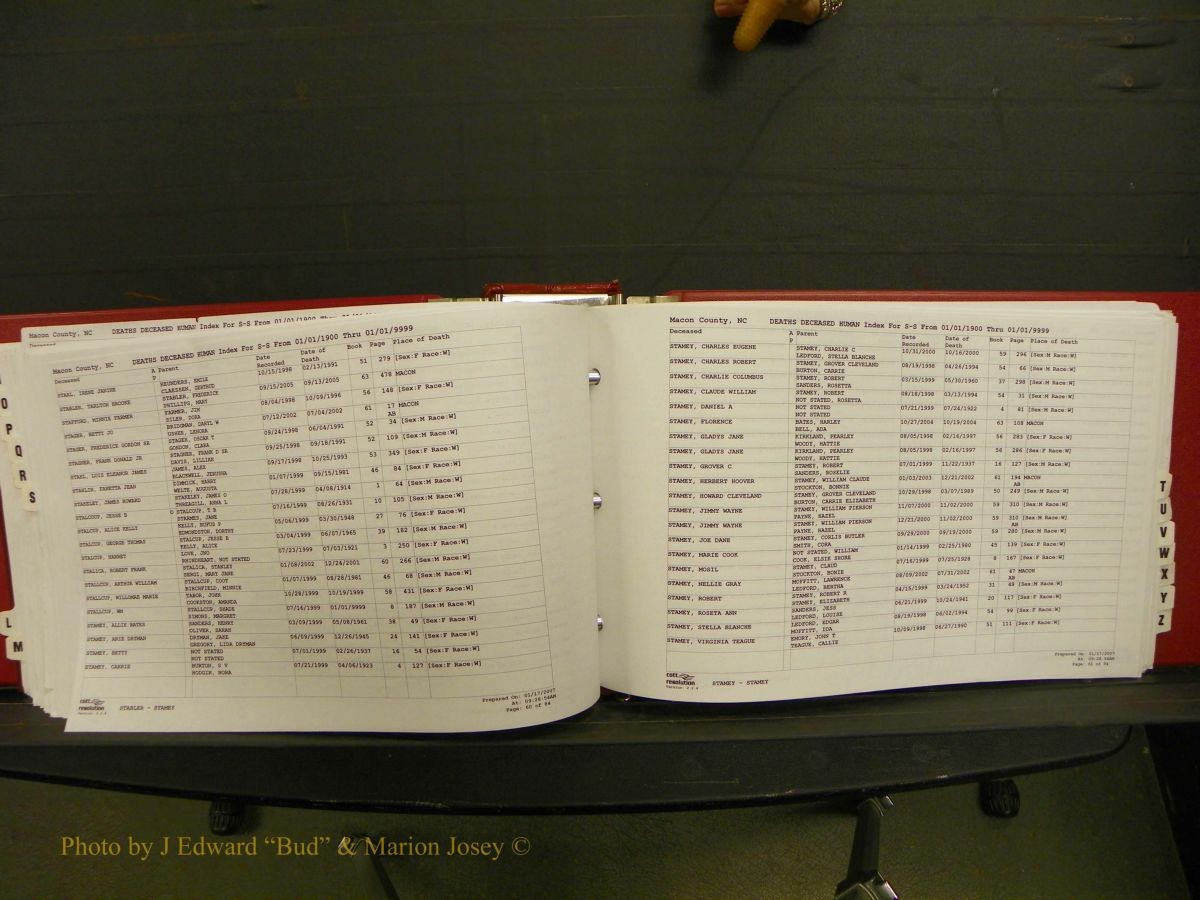 Macon County, NC DEATHS DECEASED HUMAN Index For S-S From 01/01/1900 Thru
Deceased
DEATHS DECEASED HUMAN Index For S-S From 01/01/1900 Thru 01/01/9999
Macon County, NC
Deceased A Parent Date Recorded Date of Death Book Page Place of Death
P
STAHL, IRENE JANINE REUNDERS, EMILE 10/15/1998 02/13/1991 51 279 [Sex:F Race:W]
CLAESSEN, GERTRUD
STABLER, TARLTON BROOKE STABLER, FREDERICE 09/15/2005 09/13/2005 63 478 MACON
PHILLIPS, MARY
STAFFORD, MINNIE FARMER FARMER, JIM 08/04/1998 10/09/1996 56 148 [Sex:F Race:W]
DILER, DORA
STAGER, BETTY JO BRIDGMAN, DARYL W 07/12/2002 07/04/2002 61 17 MACON
USHER, LENORA AB
STAGER, FREDERICK GORDON SR STAGER, OSCAR T 09/24/1998 06/04/1991 52 34 [Sex:M Race:W]
GORDON, CLARA
STAGNER, FRANK DONALD JR STAGNER, FRANK D SR 09/25/1998 09/18/1991 52 109 [Sex:M Race:W]
DAVIS, LILLIAN
STAHL, LOIS ELEANOR JAMES JAMES, ALEX 09/17/1998 10/25/1993 53 349 [Sex:F Race:W]
BLACKWELL, JERUSHA
DIMMICK, HARRY 01/07/1999 09/15/1981 46 84 [Sex:F Race:W]
WELTE, AUGUSTA
STAKELEY, JAMES HOWARD STAKELEY, JAMES O 07/26/1999 04/08/1914 1 64 [Sex:M Race:W]
THREAGILL, ANNA L
STALCOUP, JESSE B STALCUP, T B 07/16/1999 08/26/1931 10 105 [Sex:M Race:W]
STARNES, JANE
STALCUP, ALICE KELLY KELLY, RUFUS P 05/06/1999 03/30/1948 27 76 [Sex:F Race:W]
EDMONDSTON, DORTHY
STALCUP, GEORGE THOMAS STALCUP, JESSE B 03/04/1999 06/07/1965 39 182 [Sex:M Race:W]
KELLY, ALICE
STALCUP, HARRET LOVE, JNO 07/23/1999 07/03/1921 3 250 [Sex:F Race:W]
RHINEHEART, NOT STATED
STALICA, ROBERT FRANK STALICA, STANLEY 01/08/2002 12/24/2001 60 266 [Sex:M Race:W]
BERGI, MARY JANE
STALLCUP, ARTHUR WILLIAM STALLCUP, COOT 01/07/1999 08/28/1981 46 68 [Sex:M Race:W]
BIRCHFIELD, MINNIE
STALLCUP, WILLOMAR MARIE TABOR, JOHN 10/28/1999 10/19/1999 58 431 [Sex:F Race:W]
COOKSTON, AMANDA
STALLCUP, WM STALLCUP, SHADE 07/16/1999 01/01/9999 8 187 [Sex:M Race:W]
SIMONS, MARGRET
STAMEY, ALLIE BATES SANDERS, HENRY 03/09/1999 05/08/1961 38 49 [Sex:F Race:W]
OLIVER, SARAH
STAMEY, ARIE DRYMAN DRYMAN, JAKE 06/09/1999 12/26/1945 24 141 [Sex:F Race:W]
GREGORY, LIDA DRYMAN
STAMEY, BETTY NOT STATED 07/01/1999 02/26/1937 16 54 [Sex:F Race:W]
NOT STATED
STAMEY, CARRIE BURTON, S V 07/21/1999 04/06/1923 4 127 [Sex:F Race:W]
HODGIN, NORA
cott resolution
STABLER - STAMEY
Prepared On: 01/17/2007
At: 09:28:54AM
Page: 60 of 84
Macon County, NC DEATHS DECEASED HUMAN Index For S-S From 01/01/1900 Thru 01/01/9999
Deceased A Parent Date Recorded Date of Death Book Page Place of Death
P
STAMEY, CHARLES EUGENE STAMEY, CHARLIE C 10/31/2000 10/16/2000 59 296 [Sex:M Race:W]
LEDFORD, STELLA BLANCHE
STAMEY, CHARLES ROBERT STAMEY, GROVER CLEVELAND 08/19/1998 04/26/1994 54 66 [Sex:M Race:W]
BURTON, CARRIE
STAMEY, CHARLIE COLUMBUS STAMEY, ROBERT 03/15/1999 05/30/1960 37 298 [Sex:M Race:W]
SANDERS, ROSETTA
STAMEY, CLAUDE WILLIAM STAMEY, ROBERT 08/18/1998 03/13/1994 54 31 [Sex:M Race:W]
NOT STATED, ROSETTA
STAMEY, DANIEL A NOT STATED 07/21/1999 07/24/1922 4 81 [Sex:M Race:W]
NOT STATED
STAMEY, FLORENCE BATES, HARLEY 10/27/2004 10/19/2004 63 108 MACON
BELL, ADA
STAMEY, GLADYS JANE KIRKLAND, PEARLEY 08/05/1998 02/16/1997 56 283 [Sex:F Race:W]
WOODY, HATTIE
STAMEY, GLADYS JANE KIRKLAND, PEARLEY 08/05/1998 02/16/1997 56 286 [Sex:F Race:W]
WOODY, HATTIE
STAMEY, GROVER C STAMEY, ROBERT 07/01/1999 11/22/1937 16 127 [Sex:M Race:W]
SANDERS, ROSELIE
STAMEY, HERBERT HOOVER STAMEY, WILLIAM CLAUDE 01/03/2003 12/21/2002 61 194 MACON
STOCKTON, BONNIE AB
STAMEY, HOWARD CLEVELAND STAMEY, GROVER CLEVELAND 10/29/1998 03/07/1989 50 249 [Sex:M Race:W]
BURTON, CARRIE ELIZABETH
STAMEY, JIMMY WAYNE STAMEY, WILLIAM PIERSON 11/07/2000 11/02/2000 59 310 [Sex:M Race:W]
PAYNE, HAZEL
STAMEY, JIMMY WAYNE STAMEY, WILLIAM PIERSON 12/21/2000 11/02/2000 59 310 [Sex:M Race:W]
PAYNE, HAZEL AB
STAMEY, JOE DANE STAMEY, CORLIS BUTLER 09/29/2000 09/19/2000 59 280 [Sex:M Race:W]
SMITH, CORA
STAMEY, MARIE COOK NOT STATED, WILLIAM 01/14/1999 02/25/1980 45 139 [Sex:F Race:W]
COOK, ELSIE SHORE
STAMEY, MOSIL STAMEY, CLAUD 07/16/1999 07/25/1928 8 167 [Sex:F Race:W]
STOCKTON, BONIE
STAMEY, NELLIE GRAY MOFFITT, LAWRENCE 08/09/2002 07/31/2002 61 47 MACON
LEDFORD, BERTHA AB
STAMEY, ROBERT STAMEY, ROBERT R 04/15/1999 03/24/1952 31 49 [Sex:M Race:W]
STAMEY, ELIZABETH
STAMEY, ROSETA ANN SANDERS, JESS 06/21/1999 10/24/1941 20 117 [Sex:F Race:W]
LEDFORD, LOUISE
STAMEY, STELLA BLANCHE LEDFORD, EDGAR 08/19/1998 06/02/1994 54 99 [Sex:F Race:W]
MOFFITT, IDA
STAMEY, VIRGINIA TEAGUE EMORY, JOHN T 10/09/1998 06/27/1990 51 111 [Sex:F Race:W]
TEAGUE, CALLIE
cott resolution
STAMEY - STAMEY
Prepared On: 01/17/2007
At: 09:28:54AM
Page: 61 of 84
O
P
Q
R
S
L
M
T
U
V
W
X
Y
Z
Photo by J Edward “Bud” & Marion Josey ©